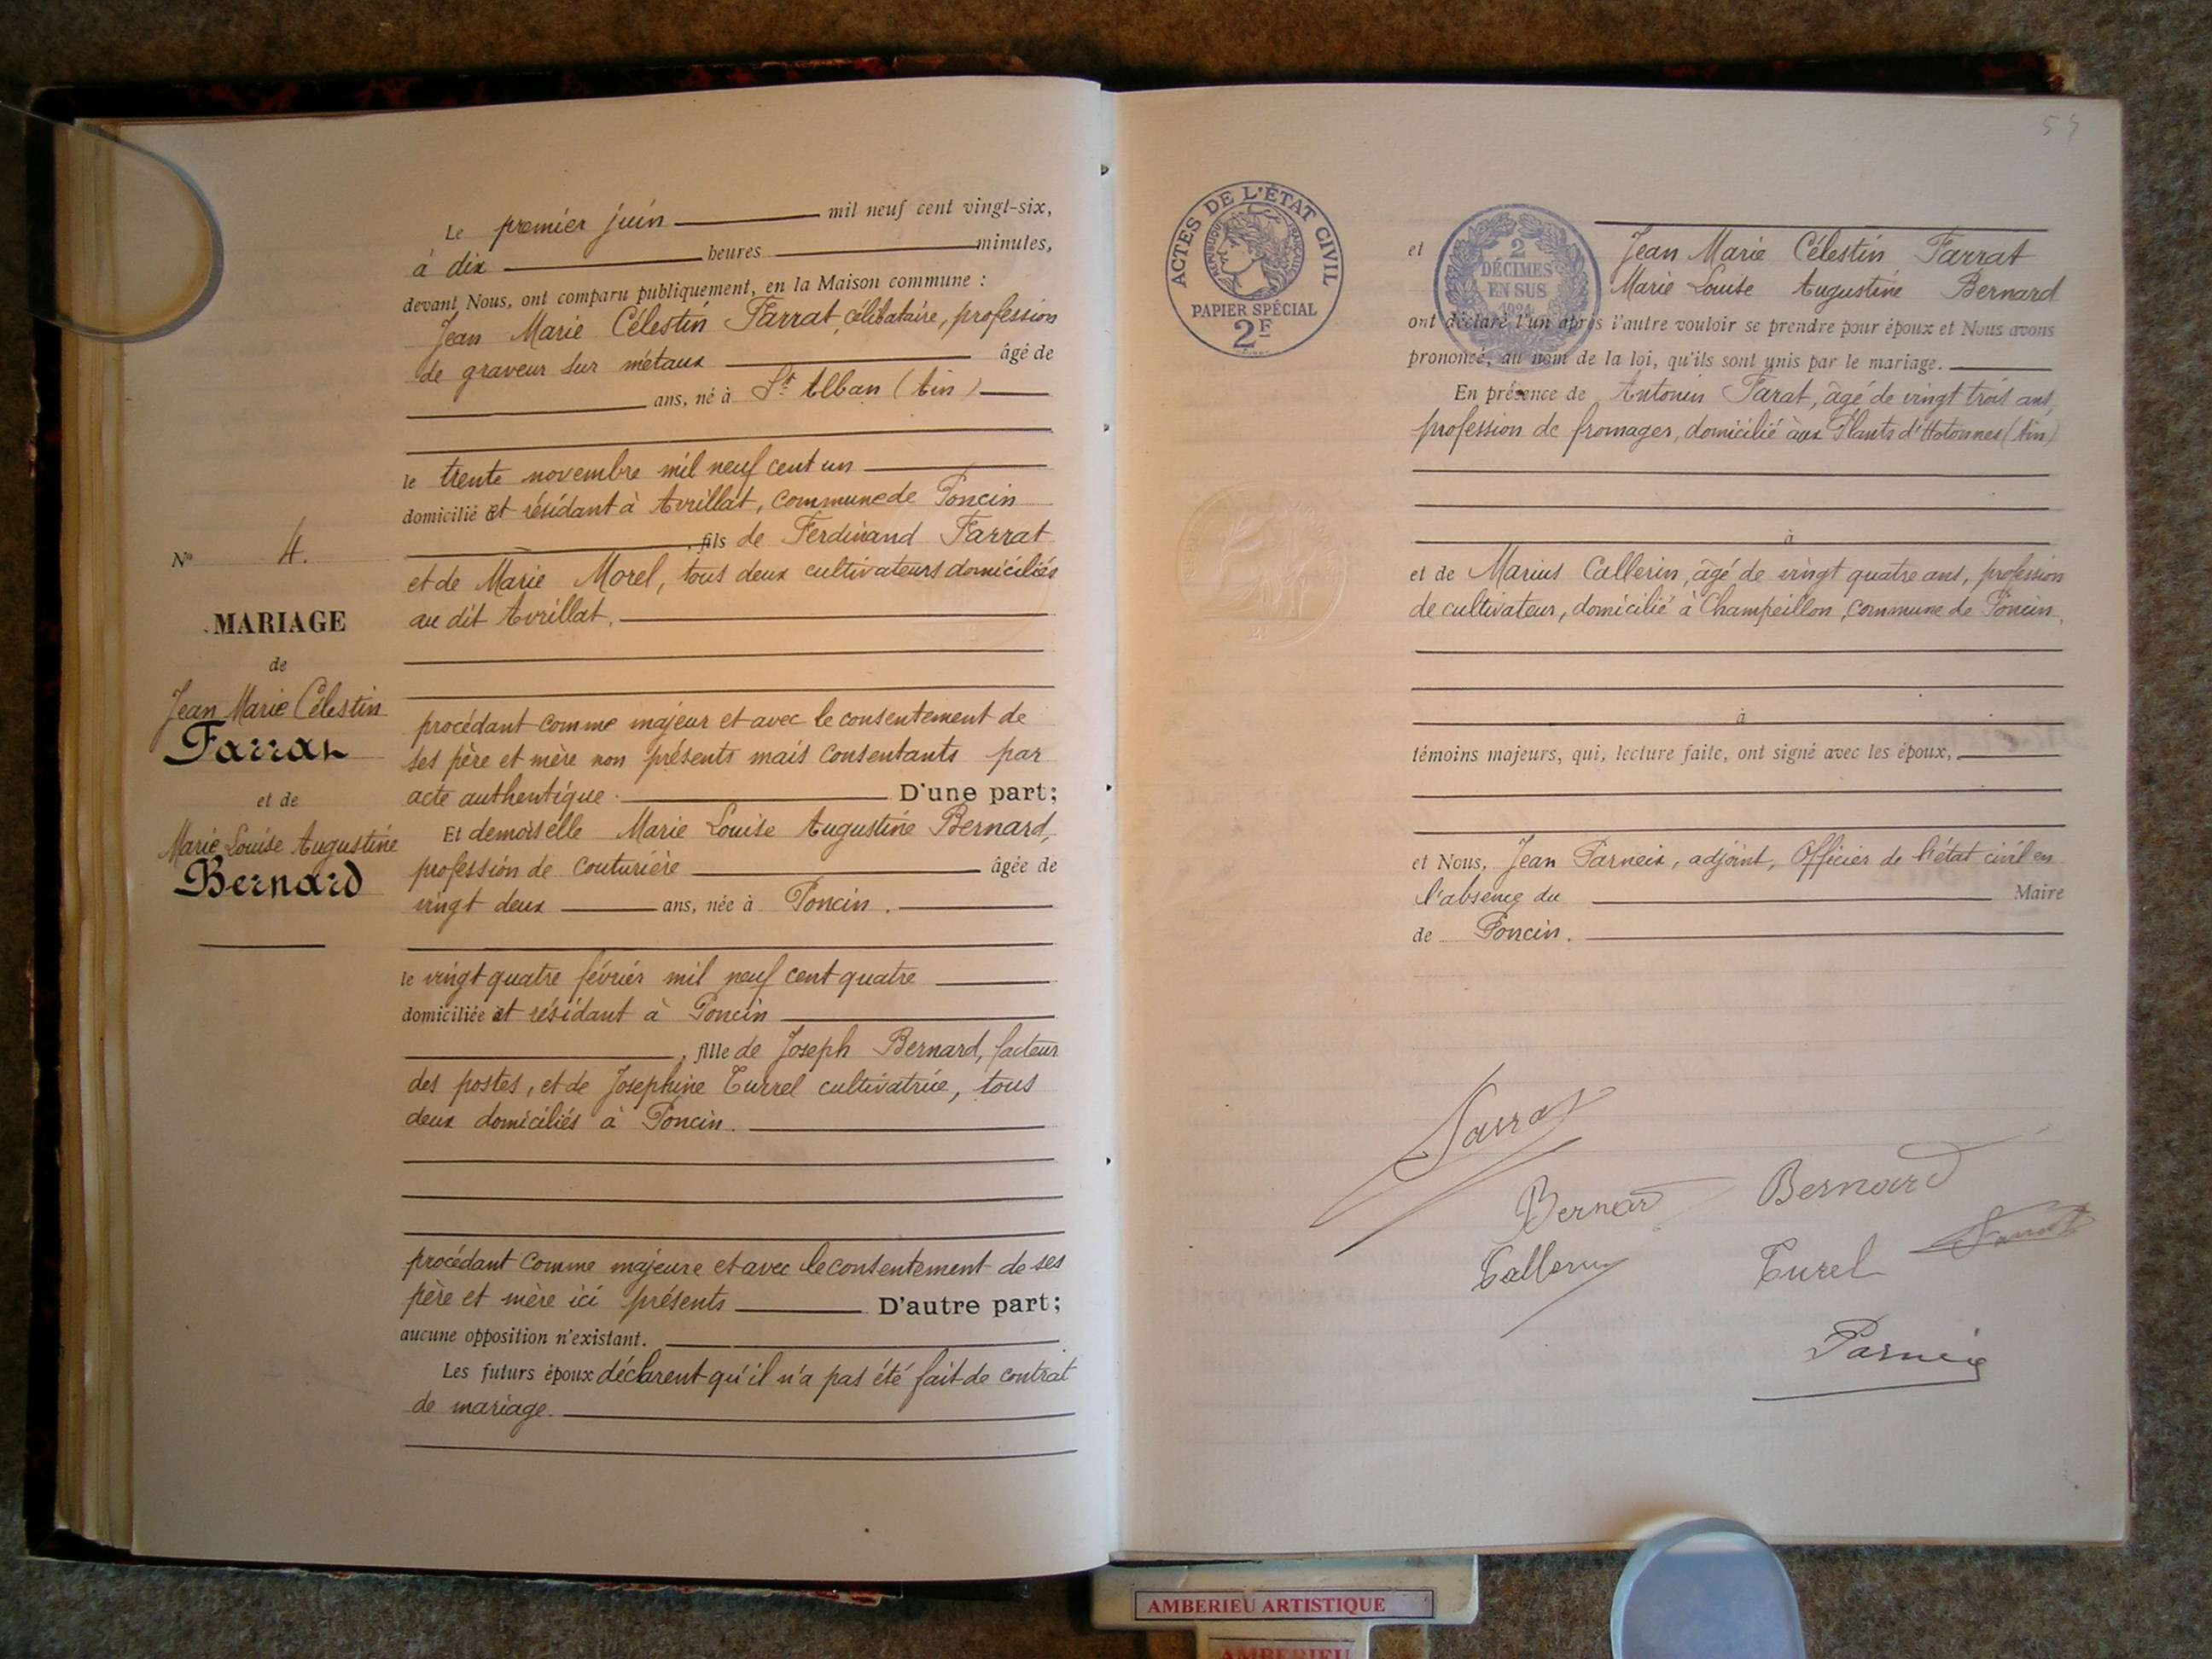 Le premier juin mil neuf cent vingt-six,
à dix heures minutes,
devant Nous, ont comparu publiquement, en la Maison commune :
Jean Marie Célestin Farrat, célibataire, profession
de graveur sur métaux âgé de
ans, né à St Alban (Ain)
le trente novembre mil neuf cent un
domicilié et résidant à Avrillat, commune de Poncin
, fils de Ferdinand Farrat
et de Marie Morel, tous deux cultivateurs domiciliés
au dit Avrillat.
procédant comme majeur et avec le consentement de
ses père et mère non présents mais consentants par
acte authentique. D'une part;
Et demoiselle Marie Louise Augustine Bernard,
profession de couturière âgée de
vingt deux ans, née à Poncin.
le vingt quatre février mil neuf cent quatre
domiciliée et résidant à Poncin
, fille de Joseph Bernard, facteur
des postes, et de Josephine Turrel cultivatrice, tous
deux domiciliés à Poncin.
procédant comme majeure et avec le consentement de ses
père et mère ici présents D'autre part;
aucune opposition n'existant.
Les futurs époux déclarent qu'il n'a pas été fait de contrat
de mariage.
No 4.
MARIAGE
de
Jean Marie Célestin
Farrat
et de
Marie Louise Augustine
Bernard
ACTES DE L'ÉTAT CIVIL
RÉPUBLIQUE FRANÇAISE
PAPIER SPÉCIAL
2F
2
DÉCIMES
EN SUS
1924
Jean Marie Célestin Farrat
et Marie Louise Augustine Bernard
ont déclaré l'un après l'autre vouloir se prendre pour époux et Nous avons
prononcé, au nom de la loi, qu'ils sont unis par le mariage.
En présence de Antonin Farat, âgé de vingt trois ans,
profession de fromager, domicilié aux Plants d'Hotonnes (Ain)
à
et de Marius Callerin, âgé de vingt quatre ans, profession
de cultivateur, domicilié à Champeillon, commune de Poncin,
à
témoins majeurs, qui, lecture faite, ont signé avec les époux,
et Nous, Jean Parneix, adjoint, Officier de l'état civil en
l'absence du Maire
de Poncin.
Farrat
Bernard Bernard
Callerin Turel Farrat
Parneix
AMBERIEU ARTISTIQUE
AMBERIEU